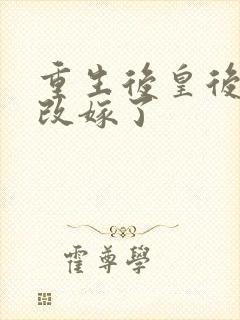 重生後皇後
改嫁了
霍尊學